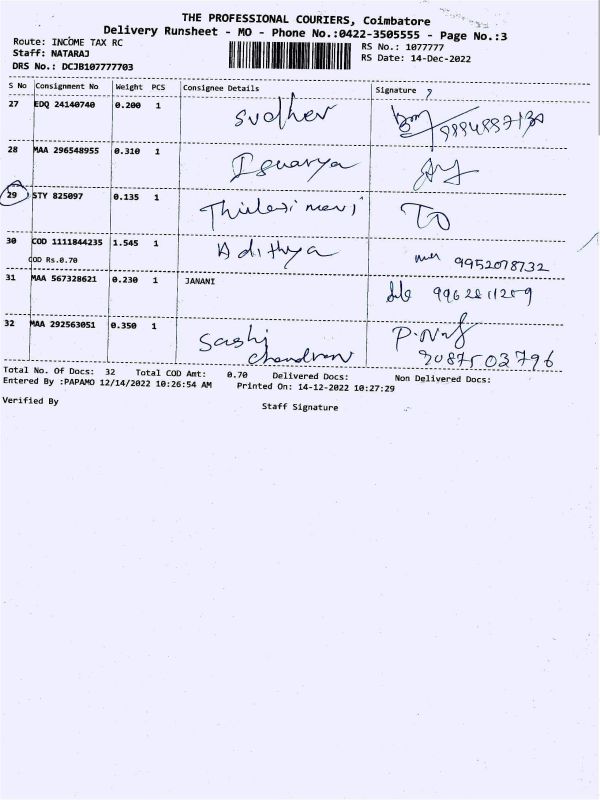 THE PROFESSIONAL COURIERS, Coimbatore
Delivery Runsheet - MO - Phone No.:0422-3505555 - Page No.:3
Route: INCOME TAX RC
Staff: NATARAJ
DRS No.: DCJB107777703
RS No.: 1077777
RS Date: 14-Dec-2022
S No Consignment No Weight PCS Consignee Details Signature
27 EDQ 24140740 0.200 1 Sudher
28 MAA 296548955 0.310 1 Iswarya
29 STY 825097 0.135 1
30 COD 1111844235 1.545 1 Adithya 9952078732
COD Rs.0.70
31 MAA 567328621 0.230 1 JANANI
32 MAA 292563051 0.350 1 Sashi
Chandran 9087503796
Total No. Of Docs: 32 Total COD Amt: 0.70 Delivered Docs: Non Delivered Docs:
Entered By :PAPAMO 12/14/2022 10:26:54 AM Printed On: 14-12-2022 10:27:29
Verified By
Staff Signature